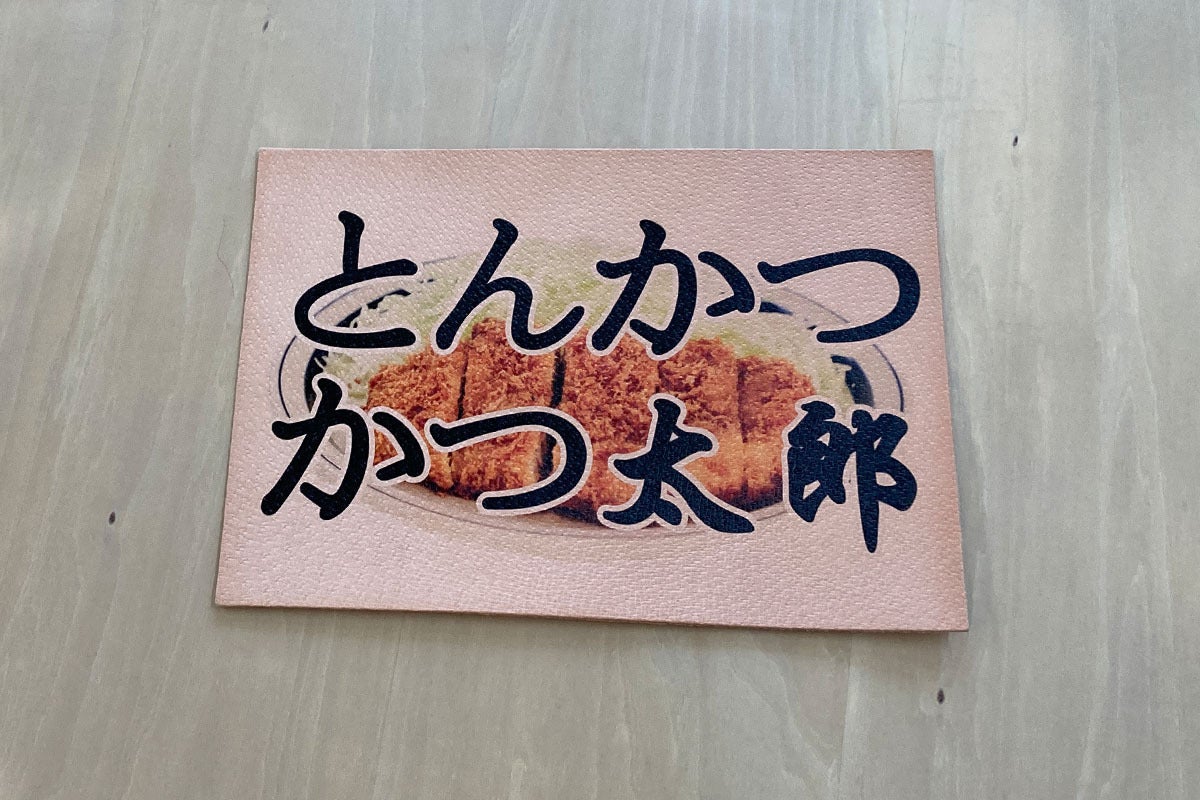 とんかつ
かつ太郎